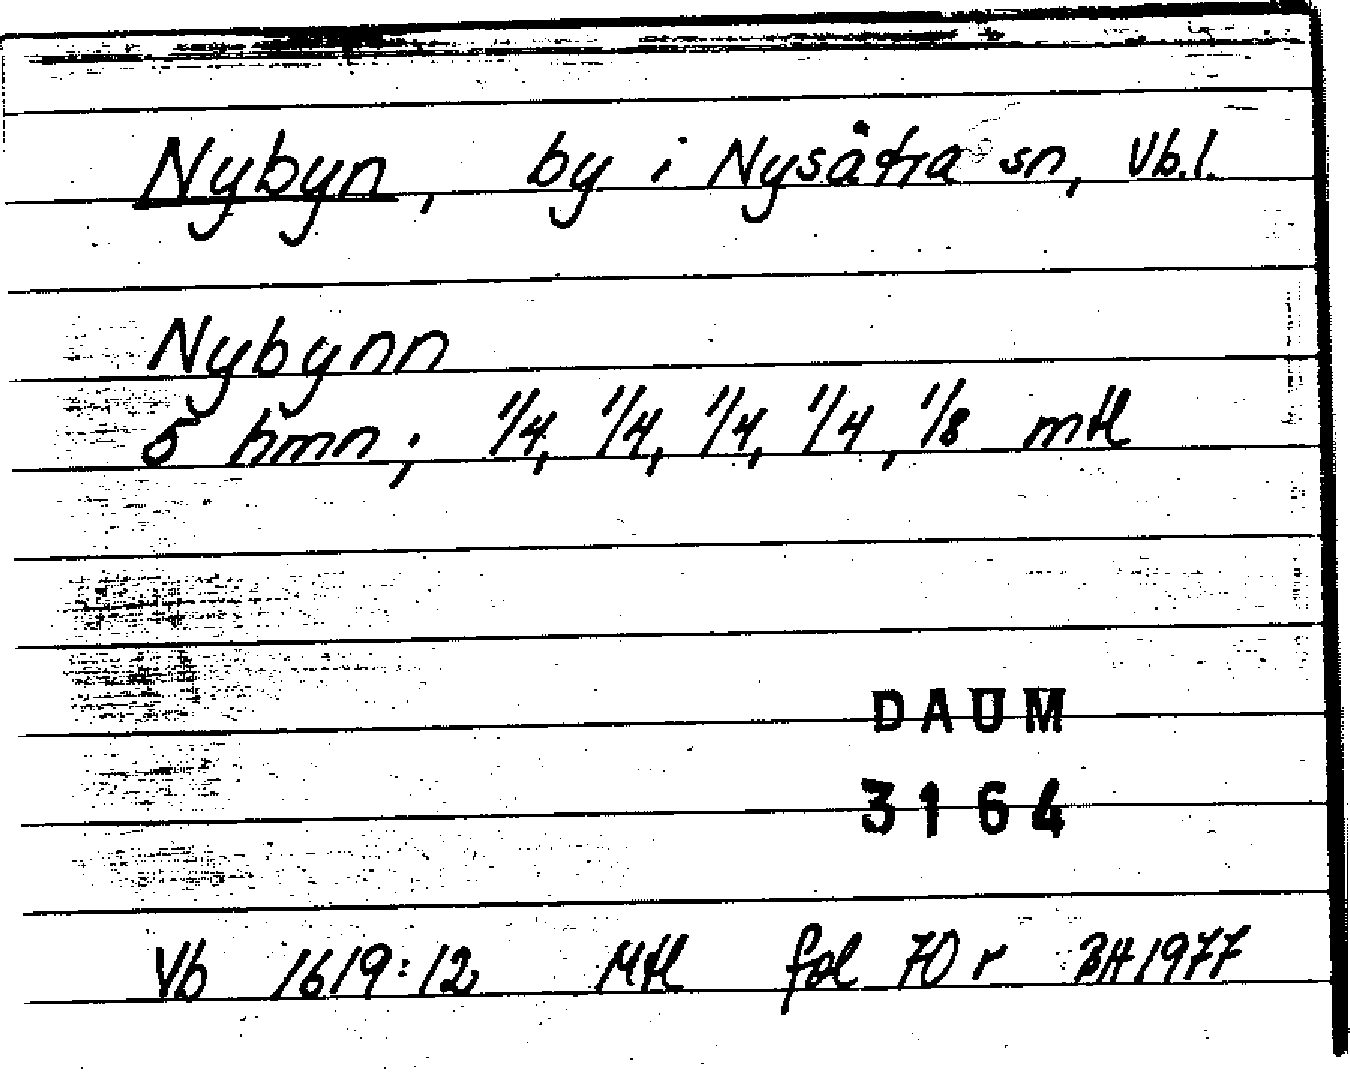 Nybyn, by i Nysåtra sn, Vb.l.
Nybynn
5 hmn; 1/4, 1/4, 1/4, 1/4, 1/8 mtl
DAUM
3164
Vb 1619:12 Mtl fol 70 r BH 1977